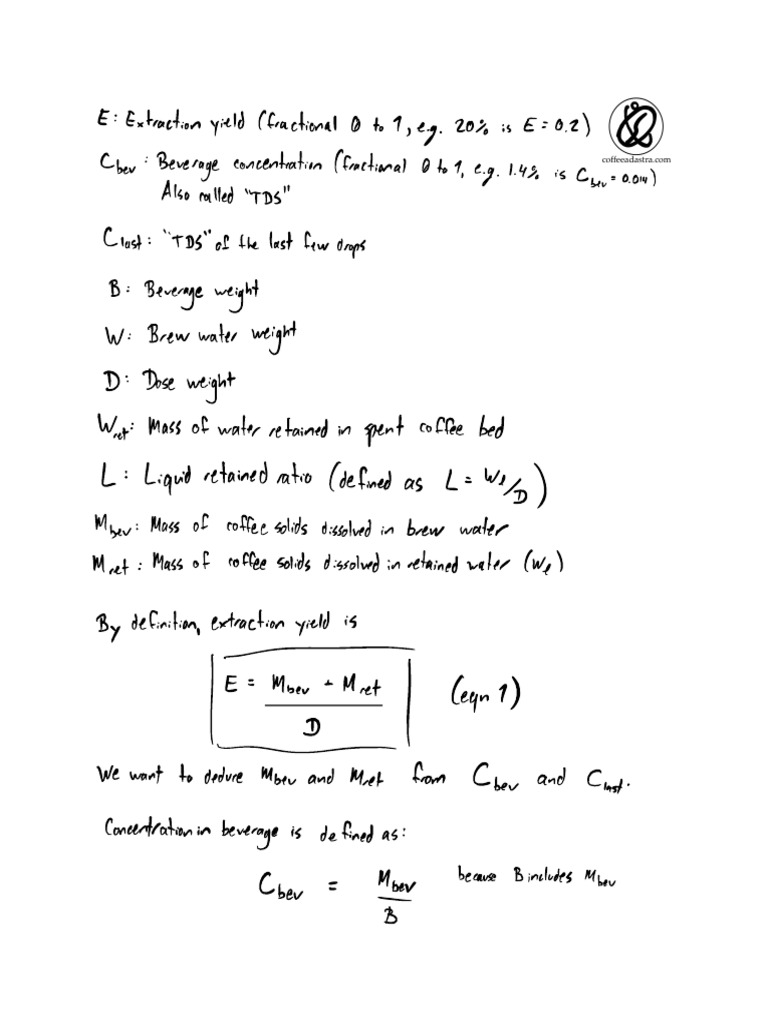 E: Extraction yield (fractional 0 to 1, e.g. 20% is E = 0.2)
coffeeadastra.com
C_bev: Beverage concentration (fractional 0 to 1, e.g. 1.4% is C_bev = 0.014)
Also called "TDS"
C_last: "TDS" of the last few drops
B: Beverage weight
W: Brew water weight
D: Dose weight
W_ret: Mass of water retained in spent coffee bed
L: Liquid retained ratio (defined as L = W_l/D)
M_bev: Mass of coffee solids dissolved in brew water
M_ret: Mass of coffee solids dissolved in retained water (W_l)
By definition, extraction yield is
E = (M_bev + M_ret) / D (eqn 1)
We want to deduce M_bev and M_ret from C_bev and C_last.
Concentration in beverage is defined as:
C_bev = M_bev / B because B includes M_bev